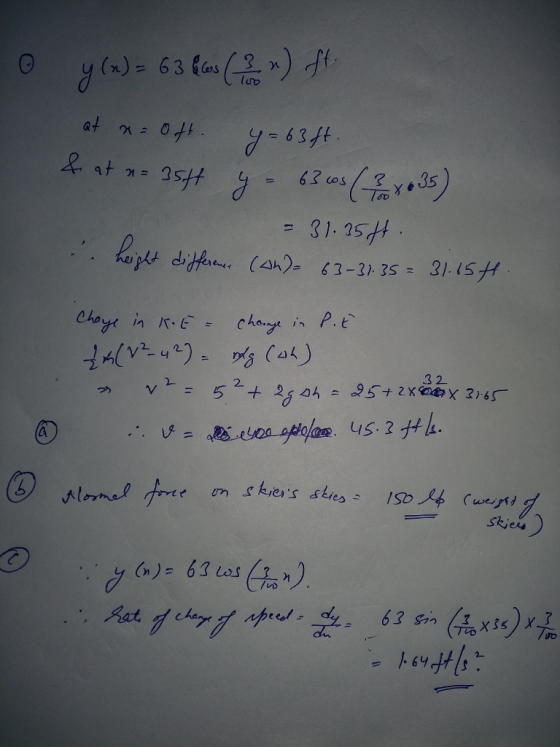 y(x) = 63 cos(3/100 x) ft.
at x = 0 ft. y = 63 ft.
& at x = 35ft y = 63 cos(3/100 x 35)
= 31.35 ft.
∴ height difference (Δh) = 63-31.35 = 31.65 ft.
Change in K.E = change in P.E
1/2 m(V² - u²) = mg (Δh)
⇒ v² = 5² + 2gΔh = 25 + 2x 32 x 31.65
(a) ∴ v = 45.3 ft/s.
(b) Normal force on skier's skies = 150 lb (weight of skier)
(c) ∵ y(x) = 63 cos(3/100 x).
∴ Rate of change of speed = dy/dx = 63 sin(3/100 x35) x 3/100
= 1.64 ft/s².